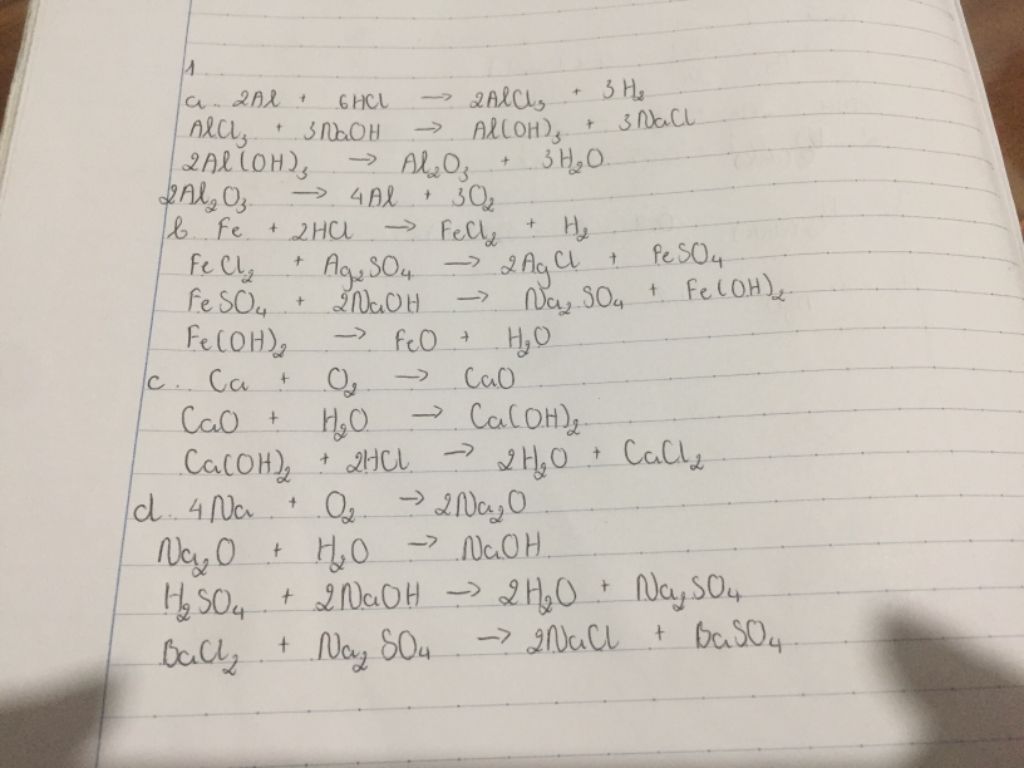 1
a. 2Al + 6HCl → 2AlCl₃ + 3H₂
AlCl₃ + 3NaOH → Al(OH)₃ + 3NaCl
2Al(OH)₃ → Al₂O₃ + 3H₂O
2Al₂O₃ → 4Al + 3O₂
b. Fe + 2HCl → FeCl₂ + H₂
FeCl₂ + Ag₂SO₄ → 2AgCl + FeSO₄
FeSO₄ + 2NaOH → Na₂SO₄ + Fe(OH)₂
Fe(OH)₂ → FeO + H₂O
c. Ca + O₂ → CaO
CaO + H₂O → Ca(OH)₂
Ca(OH)₂ + 2HCl → 2H₂O + CaCl₂
d. 4Na + O₂ → 2Na₂O
Na₂O + H₂O → NaOH
H₂SO₄ + 2NaOH → 2H₂O + Na₂SO₄
BaCl₂ + Na₂SO₄ → 2NaCl + BaSO₄